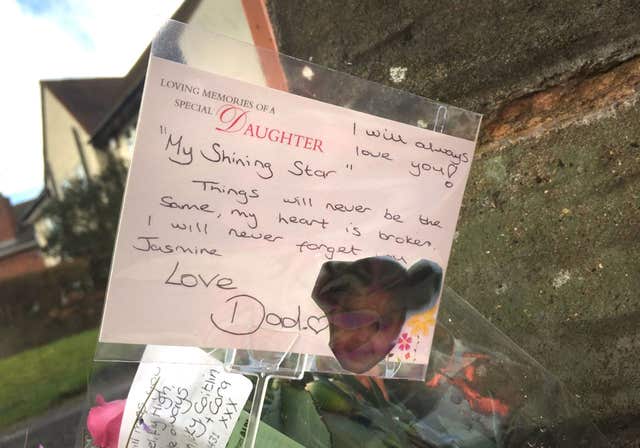 LOVING MEMORIES OF A
SPECIAL DAUGHTER
I will always
love you!
"My Shining Star"
Things will never be the
Same, my heart is broken.
I will never forget you
Jasmine
Love
Dad.
always
Caitlin
xxx